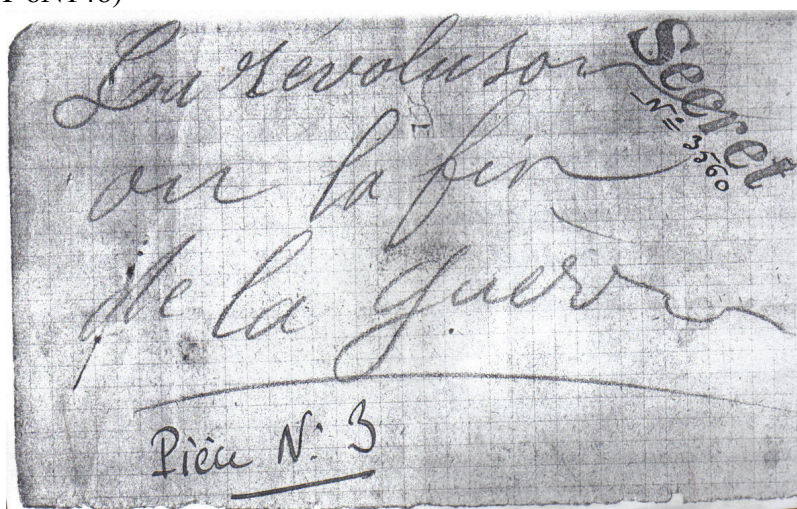 6N146)
La révoluson
ou la fin
de la guère
Secret
N° 3560
Pièce N: 3